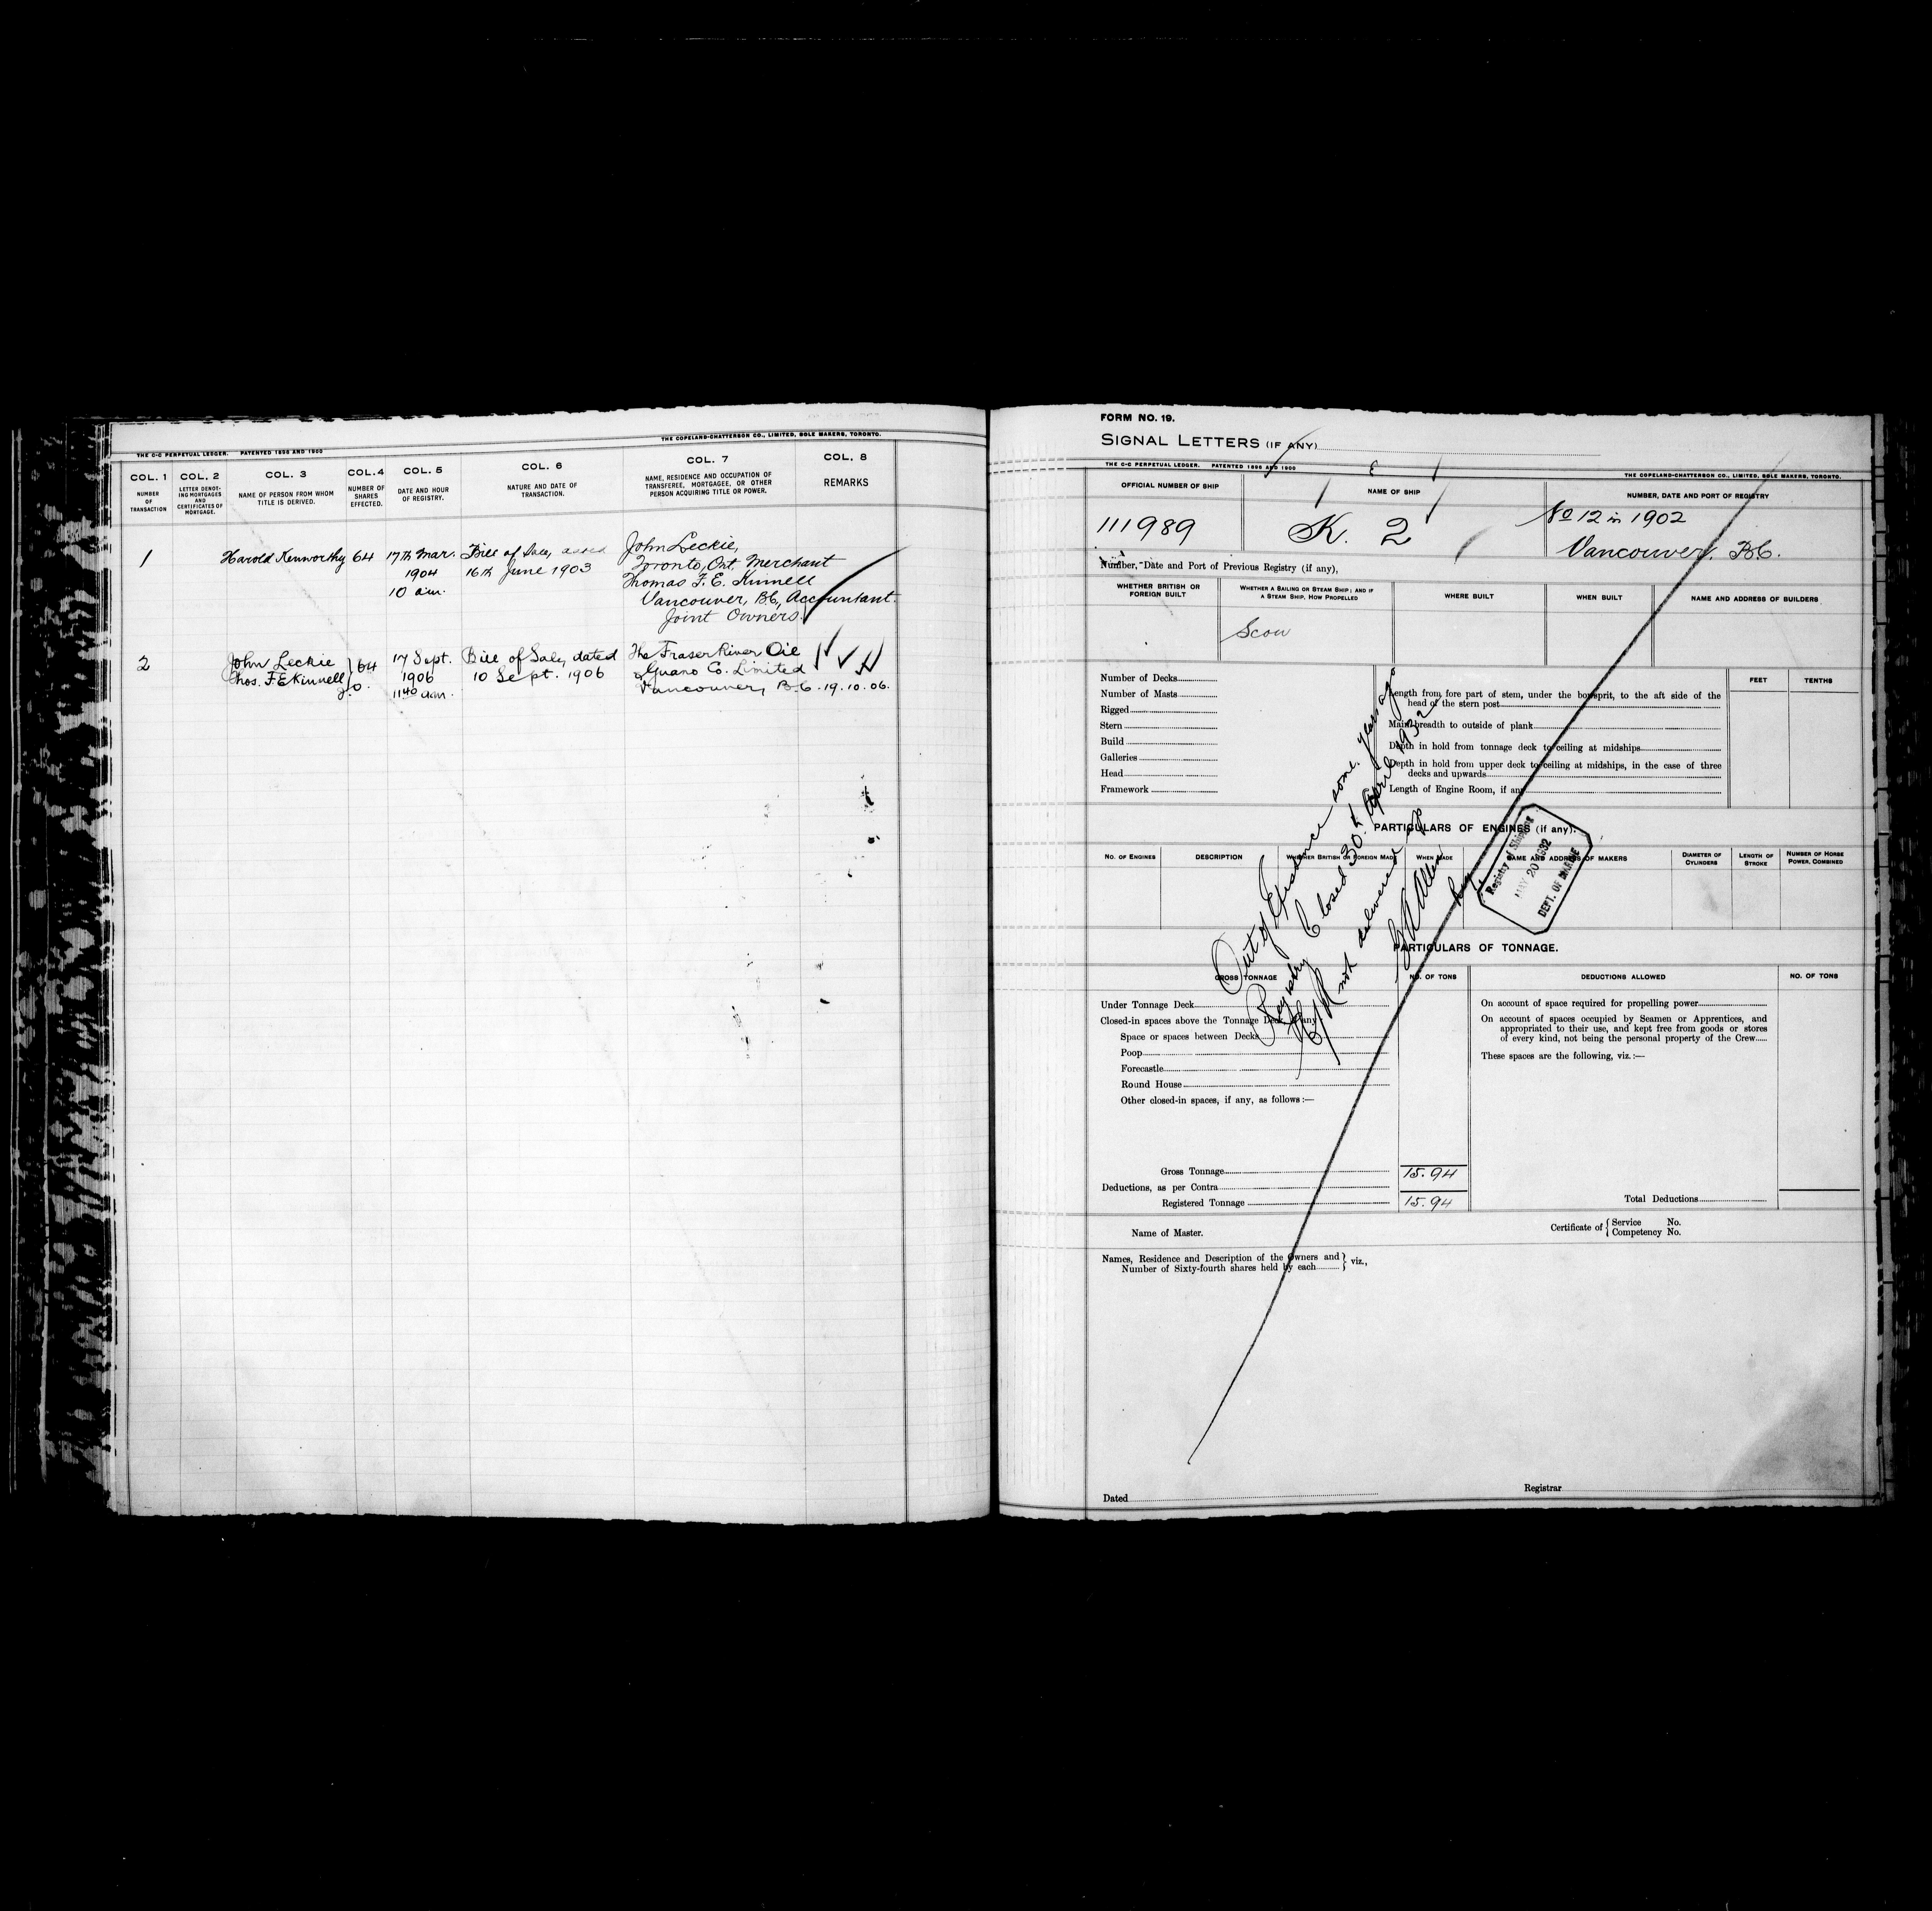 THE C-C PERPETUAL LEDGER. PATENTED 1896 AND 1900
THE COPELAND-CHATTERSON CO., LIMITED, SOLE MAKERS, TORONTO.
COL. 1 COL. 2 COL. 3 COL. 4 COL. 5 COL. 6 COL. 7 COL. 8
NUMBER OF TRANSACTION
LETTER DENOTING MORTGAGES AND CERTIFICATES OF MORTGAGE.
NAME OF PERSON FROM WHOM TITLE IS DERIVED.
NUMBER OF SHARES EFFECTED.
DATE AND HOUR OF REGISTRY.
NATURE AND DATE OF TRANSACTION.
NAME, RESIDENCE AND OCCUPATION OF TRANSFEREE, MORTGAGEE, OR OTHER PERSON ACQUIRING TITLE OR POWER.
REMARKS
1 Harold Kenworthy 64
17th Mar.
1904
10 a.m.
Bill of Sale, dated
16th June 1903
John Leckie,
Toronto, Ont. Merchant
Thomas F. E. Kinnell
Vancouver, B.C., Accountant.
Joint Owners.
2 John Leckie
Thos. F. E Kinnell } 64
J.O.
17 Sept.
1906
11 40 a.m.
Bill of Sale, dated
10 Sept. 1906
The Fraser River Oil
& Guano Co. Limited
Vancouver, B.C. 19.10.06.
FORM NO. 19.
SIGNAL LETTERS (IF ANY)
THE C-C PERPETUAL LEDGER. PATENTED 1896 AND 1900
THE COPELAND-CHATTERSON CO., LIMITED, SOLE MAKERS, TORONTO.
OFFICIAL NUMBER OF SHIP
NAME OF SHIP
NUMBER, DATE AND PORT OF REGISTRY
111989
K. 2
No 12 in 1902
Vancouver, B.C.
Number, Date and Port of Previous Registry (if any),
WHETHER BRITISH OR FOREIGN BUILT
WHETHER A SAILING OR STEAM SHIP; AND IF A STEAM SHIP, HOW PROPELLED
WHERE BUILT
WHEN BUILT
NAME AND ADDRESS OF BUILDERS
Scow
Number of Decks
Number of Masts
Rigged
Stern
Build
Galleries
Head
Framework
FEET TENTHS
Length from fore part of stem, under the bowsprit, to the aft side of the
head of the stern post
Main breadth to outside of plank
Depth in hold from tonnage deck to ceiling at midships
Depth in hold from upper deck to ceiling at midships, in the case of three
decks and upwards
Length of Engine Room, if any
Out of Existence some years ago
Registry Closed 30th April 1932
not delivered up
Allen
Reg
Registry of Shipping
MAY 20 1932
DEPT. OF MARINE
PARTICULARS OF ENGINES (if any).
NO. OF ENGINES
DESCRIPTION
WHETHER BRITISH OR FOREIGN MADE
WHEN MADE
NAME AND ADDRESS OF MAKERS
DIAMETER OF CYLINDERS
LENGTH OF STROKE
NUMBER OF HORSE POWER, COMBINED
PARTICULARS OF TONNAGE.
GROSS TONNAGE
NO. OF TONS
DEDUCTIONS ALLOWED
NO. OF TONS
Under Tonnage Deck
Closed-in spaces above the Tonnage Deck, if any
Space or spaces between Decks
Poop
Forecastle
Round House
Other closed-in spaces, if any, as follows:—
On account of space required for propelling power
On account of spaces occupied by Seamen or Apprentices, and
appropriated to their use, and kept free from goods or stores
of every kind, not being the personal property of the Crew
These spaces are the following, viz.:—
Gross Tonnage 15.94
Deductions, as per Contra
Registered Tonnage 15.94
Total Deductions
Name of Master.
Certificate of { Service No.
Competency No.
Names, Residence and Description of the Owners and
Number of Sixty-fourth shares held by each } viz.,
Dated
Registrar